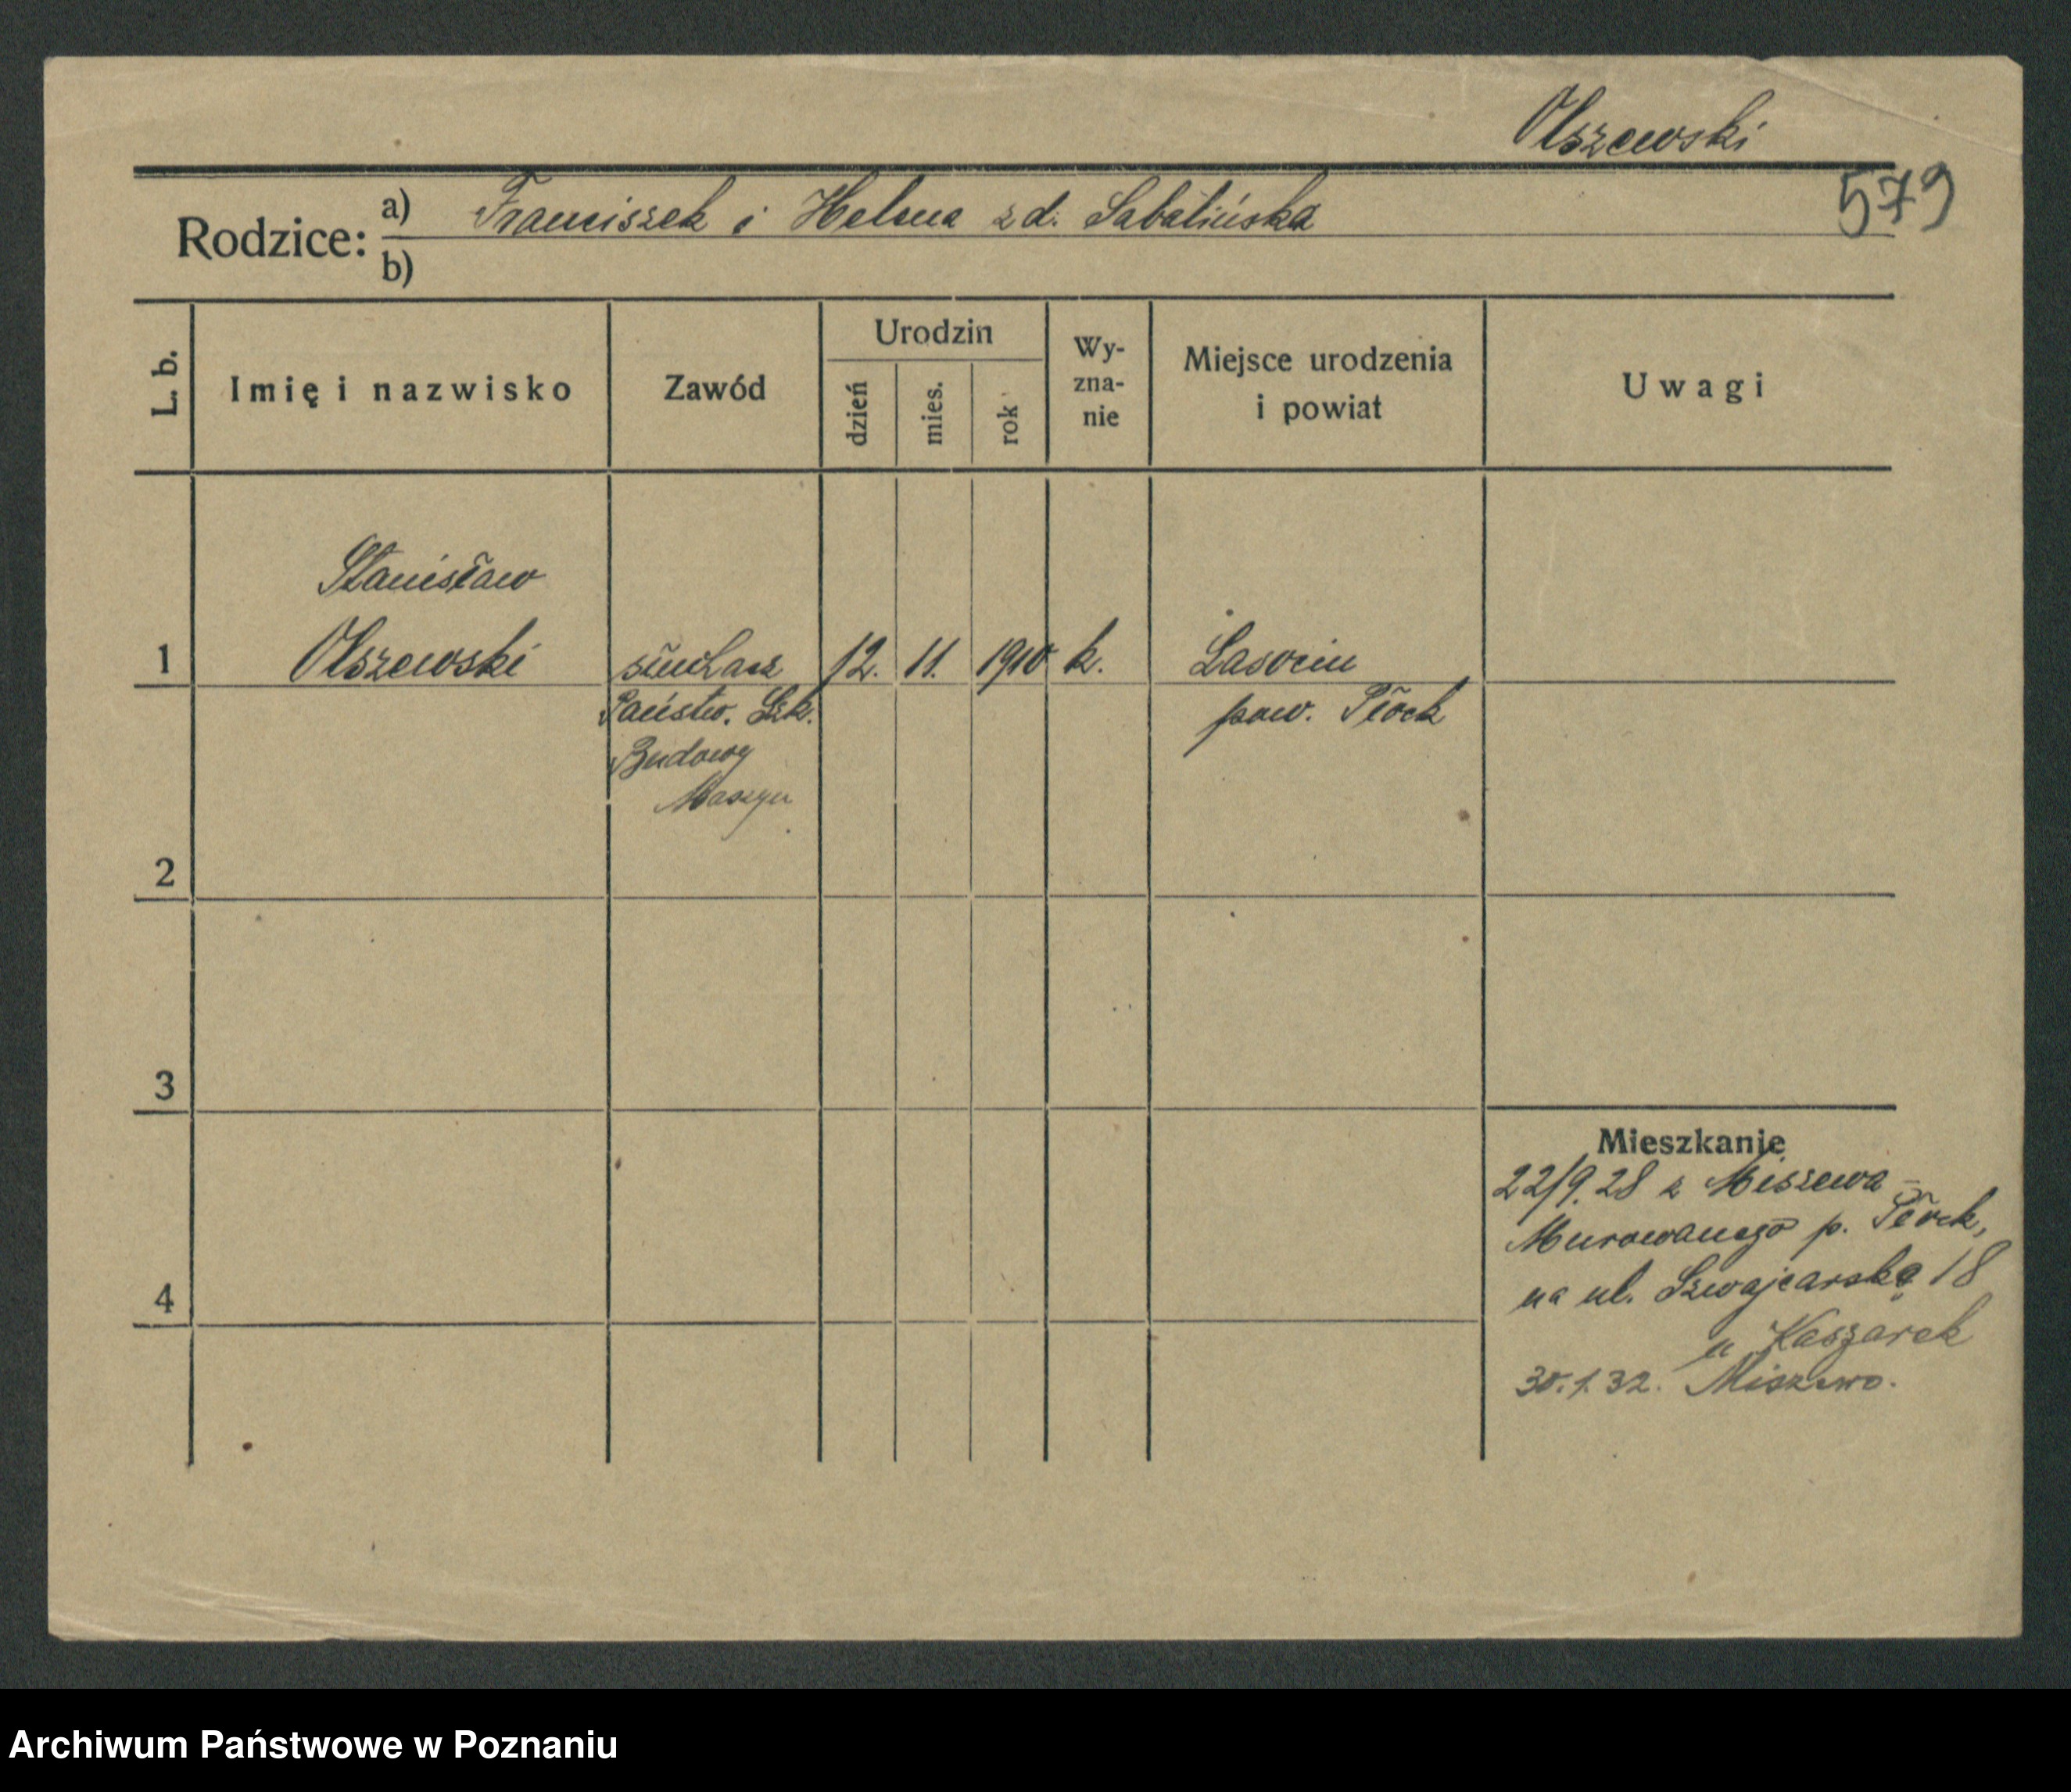 Olszewski
579
Rodzice: a) Franciszek i Helena z d. Sabalińska
b)
L. b. Imię i nazwisko Zawód Urodzin dzień mies. rok Wy-zna-nie Miejsce urodzenia i powiat Uwagi
Stanisław
1 Olszewski słuchacz 12. 11. 1910 k. Lasocin
Państw. Szk. pow. Płock
Budowy
Maszyn
2
3
Mieszkanie
22/9.28 z Miszewa -
Murowanego p. Płock,
4 na ul. Szwajcarską 18
u Kaszarek
30.1.32. Miszewo.
Archiwum Państwowe w Poznaniu